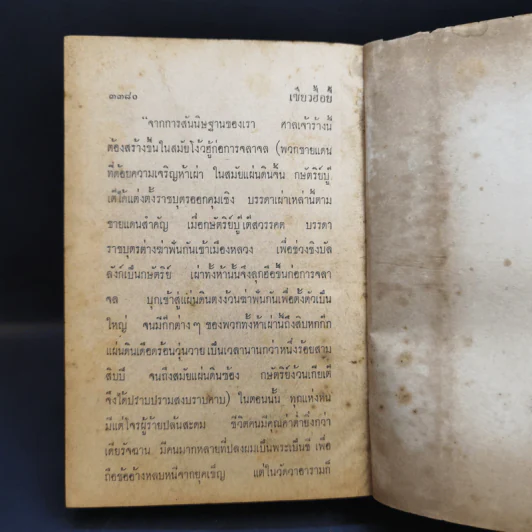 ๓๓๘๐ เซียวฮื้อยี้
"จากการสันนิษฐานของเรา ศาลเจ้าร้างนี้
ต้องสร้างขึ้นในสมัยโง้วฮู้ก่อการจลาจล (พวกชายแดน
ที่ด้อยความเจริญห้าเผ่า ในสมัยแผ่นดินจิ้น กษัตริย์บู๊
เต้ได้แต่งตั้งราชบุตรออกคุมเชิง บรรดาเผ่าเหล่านี้ตาม
ชายแดนสำคัญ เมื่อกษัตริย์บู๊เต้สวรรคต บรรดา
ราชบุตรต่างฆ่าฟันกันเข้าเมืองหลวง เพื่อช่วงชิงบัล
ลังก์เป็นกษัตริย์ เผ่าทั้งห้านั้นจึงลุกฮือขึ้นก่อการจลา
จล บุกเข้าสู่แผ่นดินตงง้วนฆ่าฟันกันเพื่อตั้งตัวเป็น
ใหญ่ จนมีก๊กต่าง ๆ ของพวกทั้งห้าเผ่านี้ถึงสิบหกก๊ก
แผ่นดินเดือดร้อนวุ่นวาย เป็นเวลานานกว่าหนึ่งร้อยสาม
สิบปี จนถึงสมัยแผ่นดินซ้อง กษัตริย์ง้วนเกียเต้
จึงได้ปราบปรามสงบราบคาบ) ในตอนนั้น ทุกแห่งหน
มีแต่โจรผู้ร้ายปล้นสะดม ชีวิตคนมีคุณค่าต่ำยิ่งกว่า
เดียรัจฉาน มีคนมากหลายที่ปลงผมเป็นพระเป็นชี เพื่อ
ถือข้ออ้างหลบหนีจากยุคเข็ญ แต่ในวัดวาอารามก็